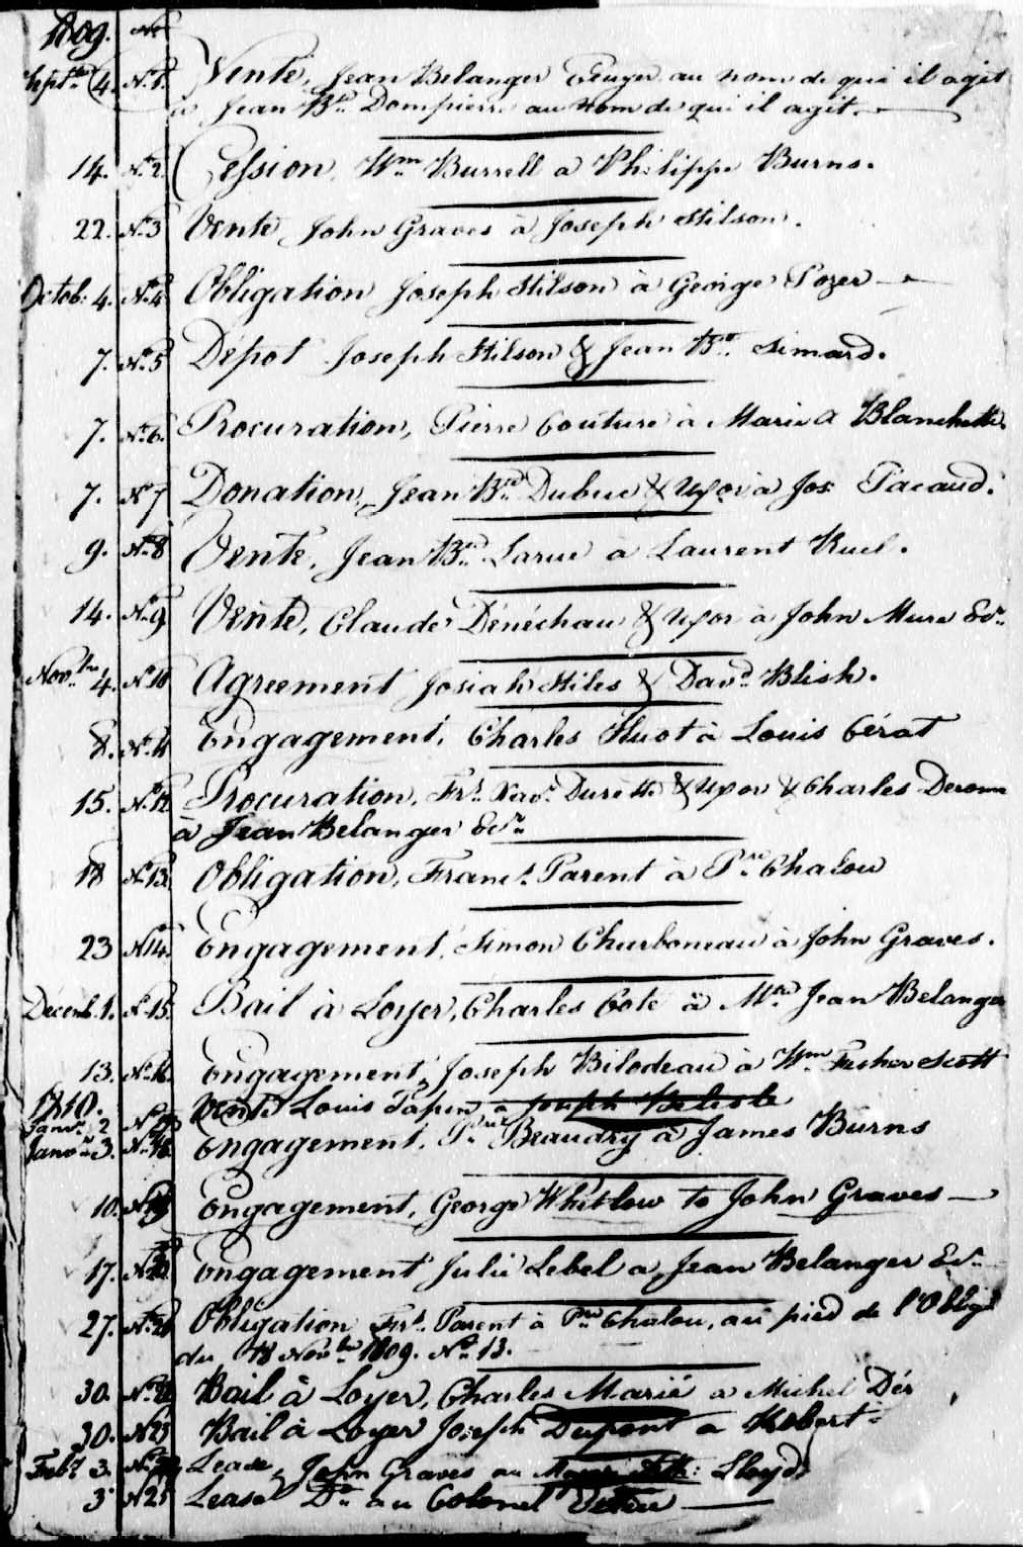 1809. No
Septbre 4. No 1. Vente, Jean Belanger Ecuyer au nom de qui il agit
à Jean Bte Dompierre au nom de qui il agit.
14. No 2. Cession, Wm Burrell a Philippe Burns.
22. No 3 Vente, John Graves à Joseph Stilson.
Octob: 4. No 4 Obligation Joseph Stilson à George Pozer
7. No 5 Dépot Joseph Stilson & Jean Bte Simard.
7. No 6. Procuration, Pierre Couture à Marie A Blanchette.
7. No 7 Donation, Jean Bte Dubuc & Uxor à Jos Pacaud.
9. No 8 Vente, Jean Bte Larue à Laurent Ruel.
14. No 9 Vente, Claude Dénéchau & Uxor à John Mure Ecr
Novbre 4. No 10 Agreement Josiah Stiles & Davd Blish.
8. No 11 Engagement, Charles Huot à Louis Cérat
15. No 12 Procuration, Frs Xavr Durette & Uxor & Charles Derome
à Jean Belanger Ecr
18 No 13. Obligation, Frans Parent à Pre Chalou
23 No 14. Engagement, Simon Charboneau à John Graves.
Décemb. 1. No 15. Bail à Loyer, Charles Coté à Mtre Jean Belanger
13. No 16. Engagement, Joseph Bilodeau à Wm Fisher Scott
1810.
Janvr 2 No 17 Vente Louis Papin à Joseph Belisle
Janvr 3. No 18. Engagement, Pre Beaudry à James Burns
10. No 19 Engagement, George Whitlow to John Graves
17. No 20 Engagement Julie Lebel a Jean Belanger Ecr
27. No 21 Obligation Frs Parent à Pre Chalou, au pied de l'Oblign
du 18 Novbre 1809. No 13.
30. No 22 Bail à Loyer, Charles Marié a Michel Dér
30. No 23 Bail à Loyer Joseph Dupont a Robert
Febr 3. No 24 Lease, John Graves au Major Lloyd
3 No 25 Lease Do au Colonel